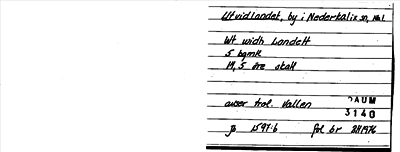 Utvidlandet, by i Nederkalix sn, Nbl.
Wt widh Landett
5 bgmk
14, 5 öre skatt
avser trol. Vallen
DAUM
3140
Jb 1597:6 fol 6r 2H1976